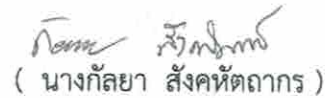 ( นางกัลยา สังคหัตถากร )